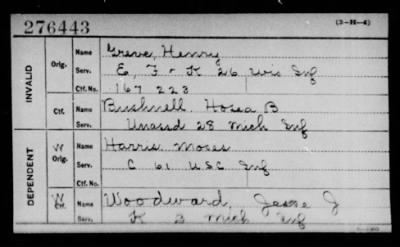 276443 (3-H-4)
INVALID
Orig. Name Greve, Henry
Serv. E, F + K 26 Wis Inf
Ctf. No. 167 223
Ctf. Name Bushnell Hosea B
Serv. Unassd 28 Mich Inf
DEPENDENT
W Orig. Name Harris Moses
Serv. C 61 U.S.C. Inf
Ctf. No.
W Ctf. Name Woodward, Jesse J
Serv. K 3 Mich Inf